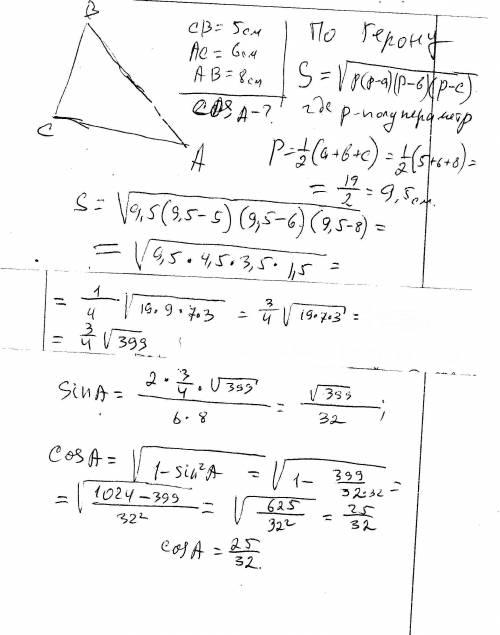 B
C
A
CB = 5см
AC = 6см
AB = 8см
cos A - ?
По Герону
S = √p(p-a)(p-b)(p-c)
где p-полупериметр
P = 1/2 (a+b+c) = 1/2 (5+6+8) =
= 19/2 = 9,5см.
S = √9,5(9,5-5)(9,5-6)(9,5-8) =
= √9,5 · 4,5 · 3,5 · 1,5 =
= 1/4 · √19·9·7·3 = 3/4 √19·7·3 =
= 3/4 √399
sin A = 2 · 3/4 · √399 / 6·8 = √399 / 32 ;
cos A = √1 - sin²A = √1 - 399/32·32 =
= √1024 - 399 / 32² = √625 / 32² = 25/32
cos A = 25/32.